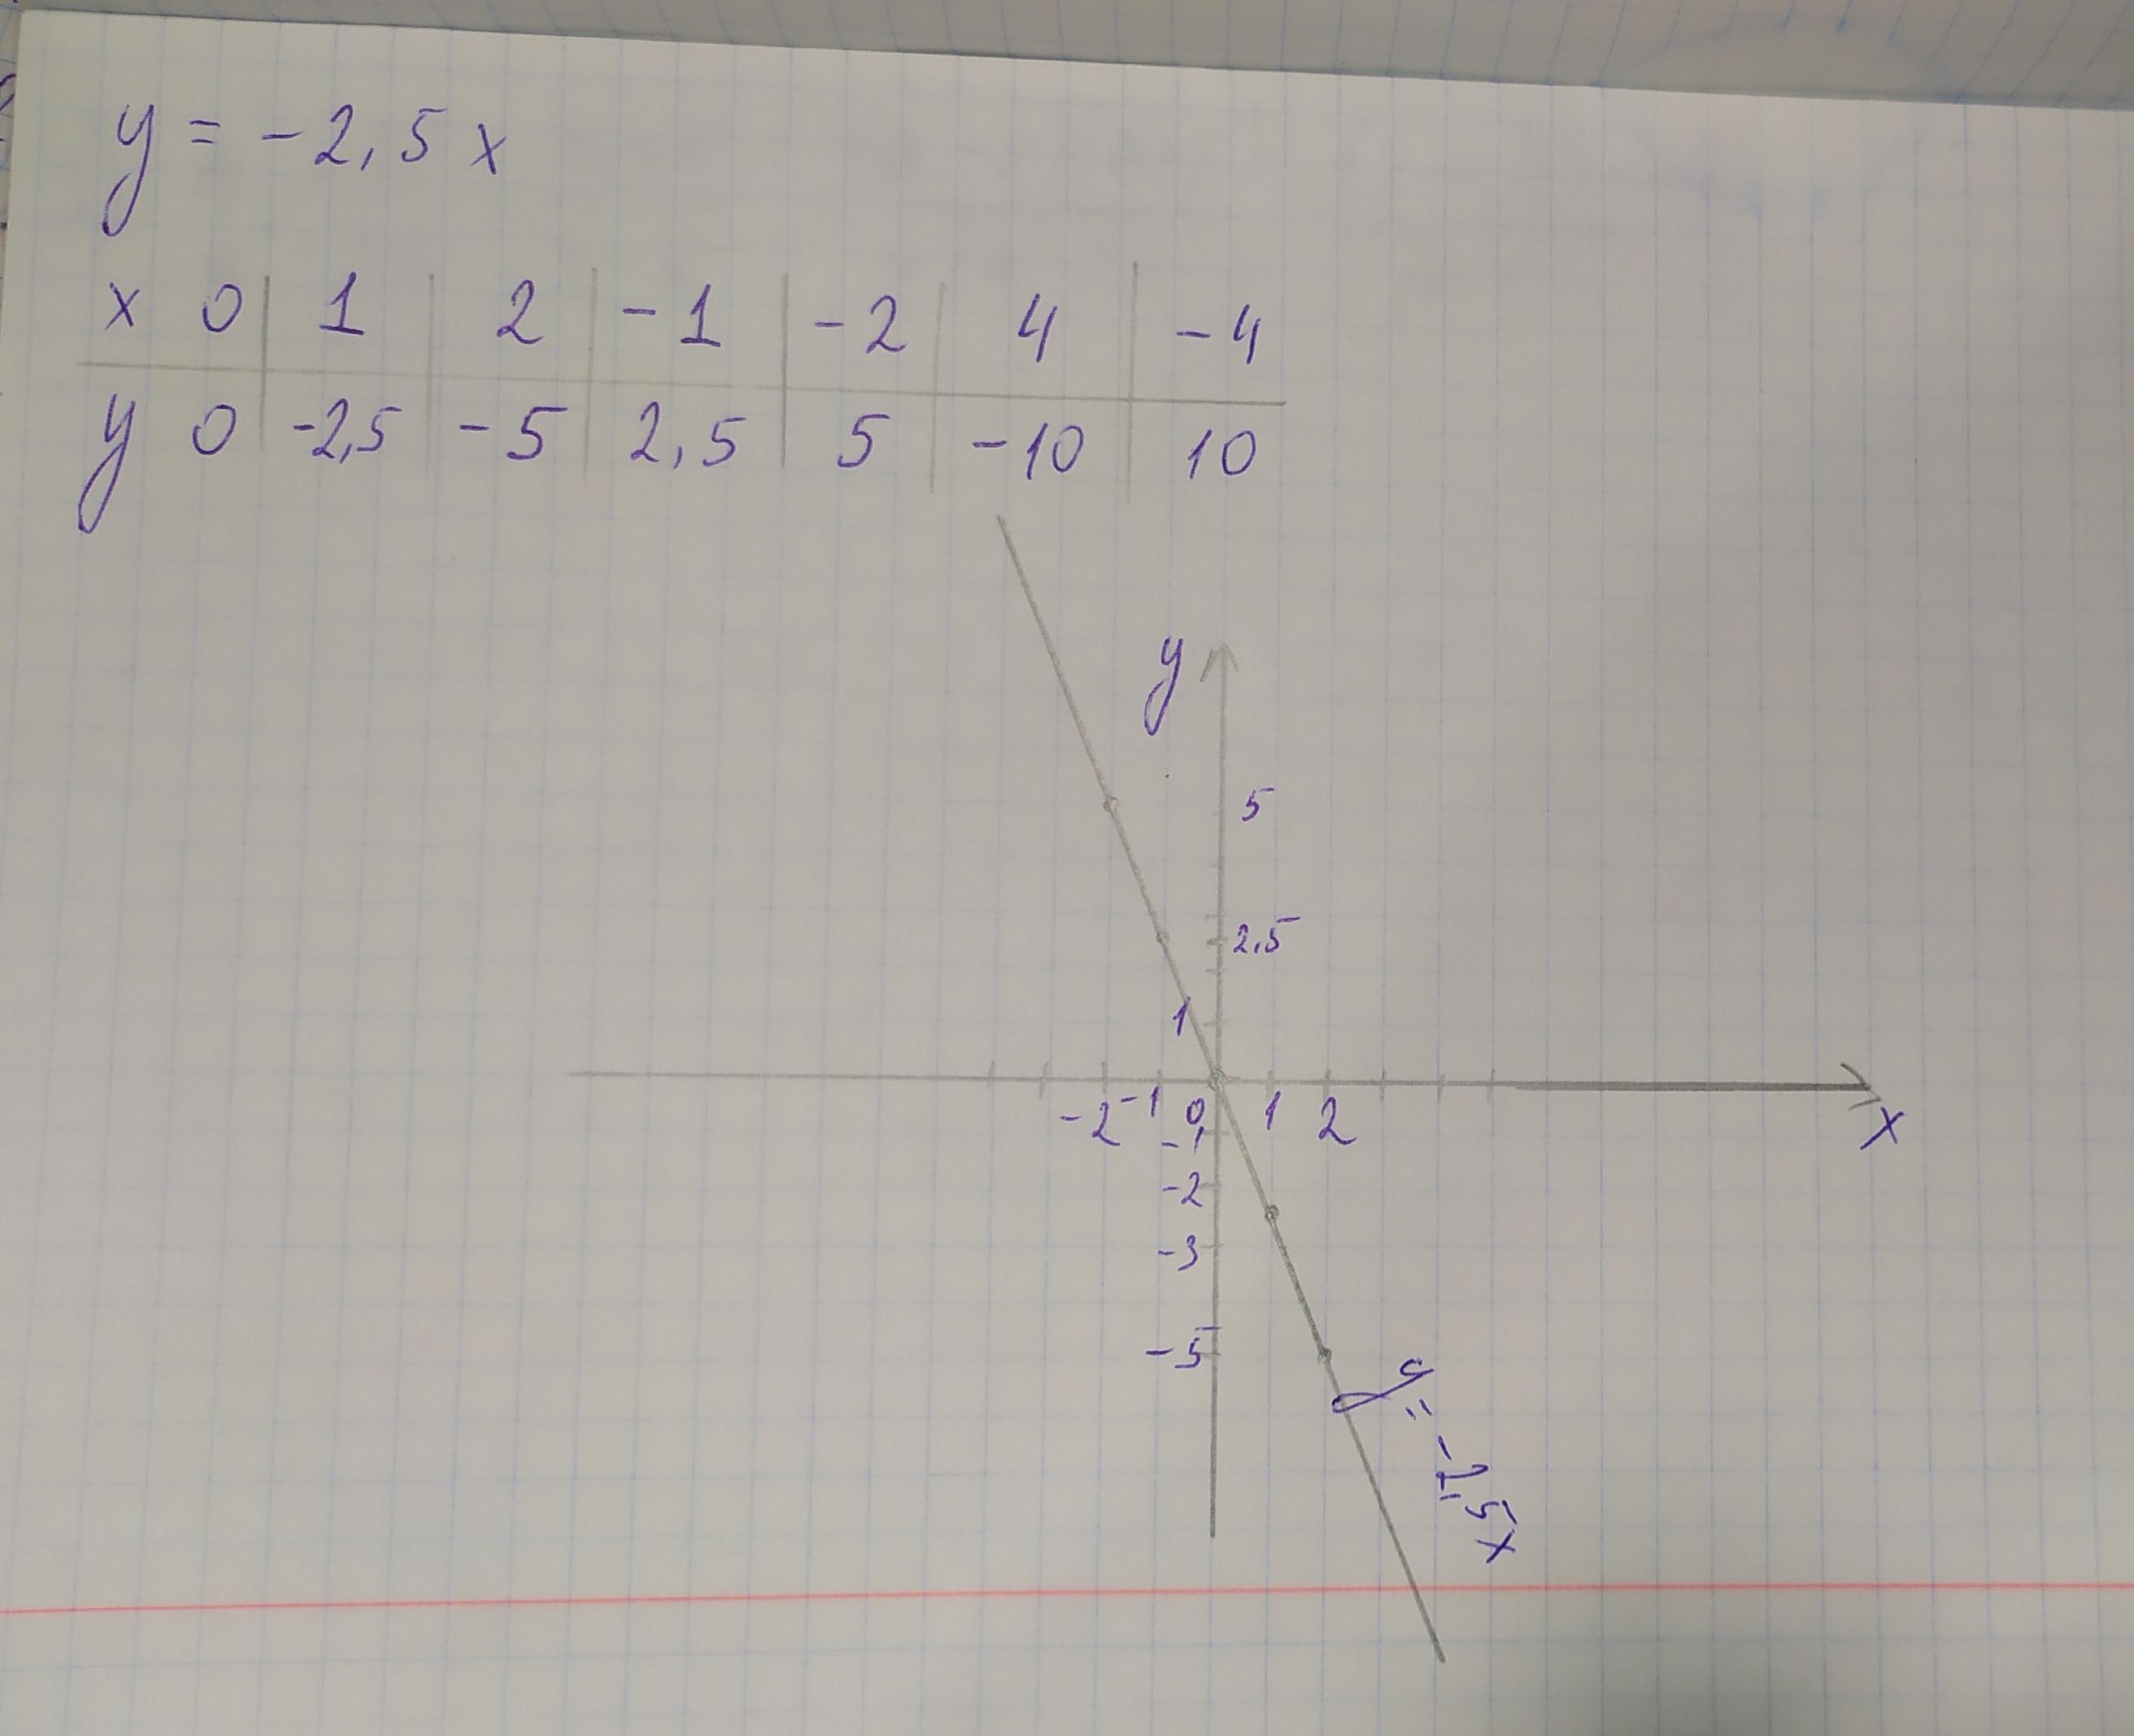 y = -2,5 x
x 0 1 2 -1 -2 4 -4
y 0 -2,5 -5 2,5 5 -10 10
y
5
2,5
1
-2 -1 0 1 2
x
-1
-2
-3
-5
y = -2,5x